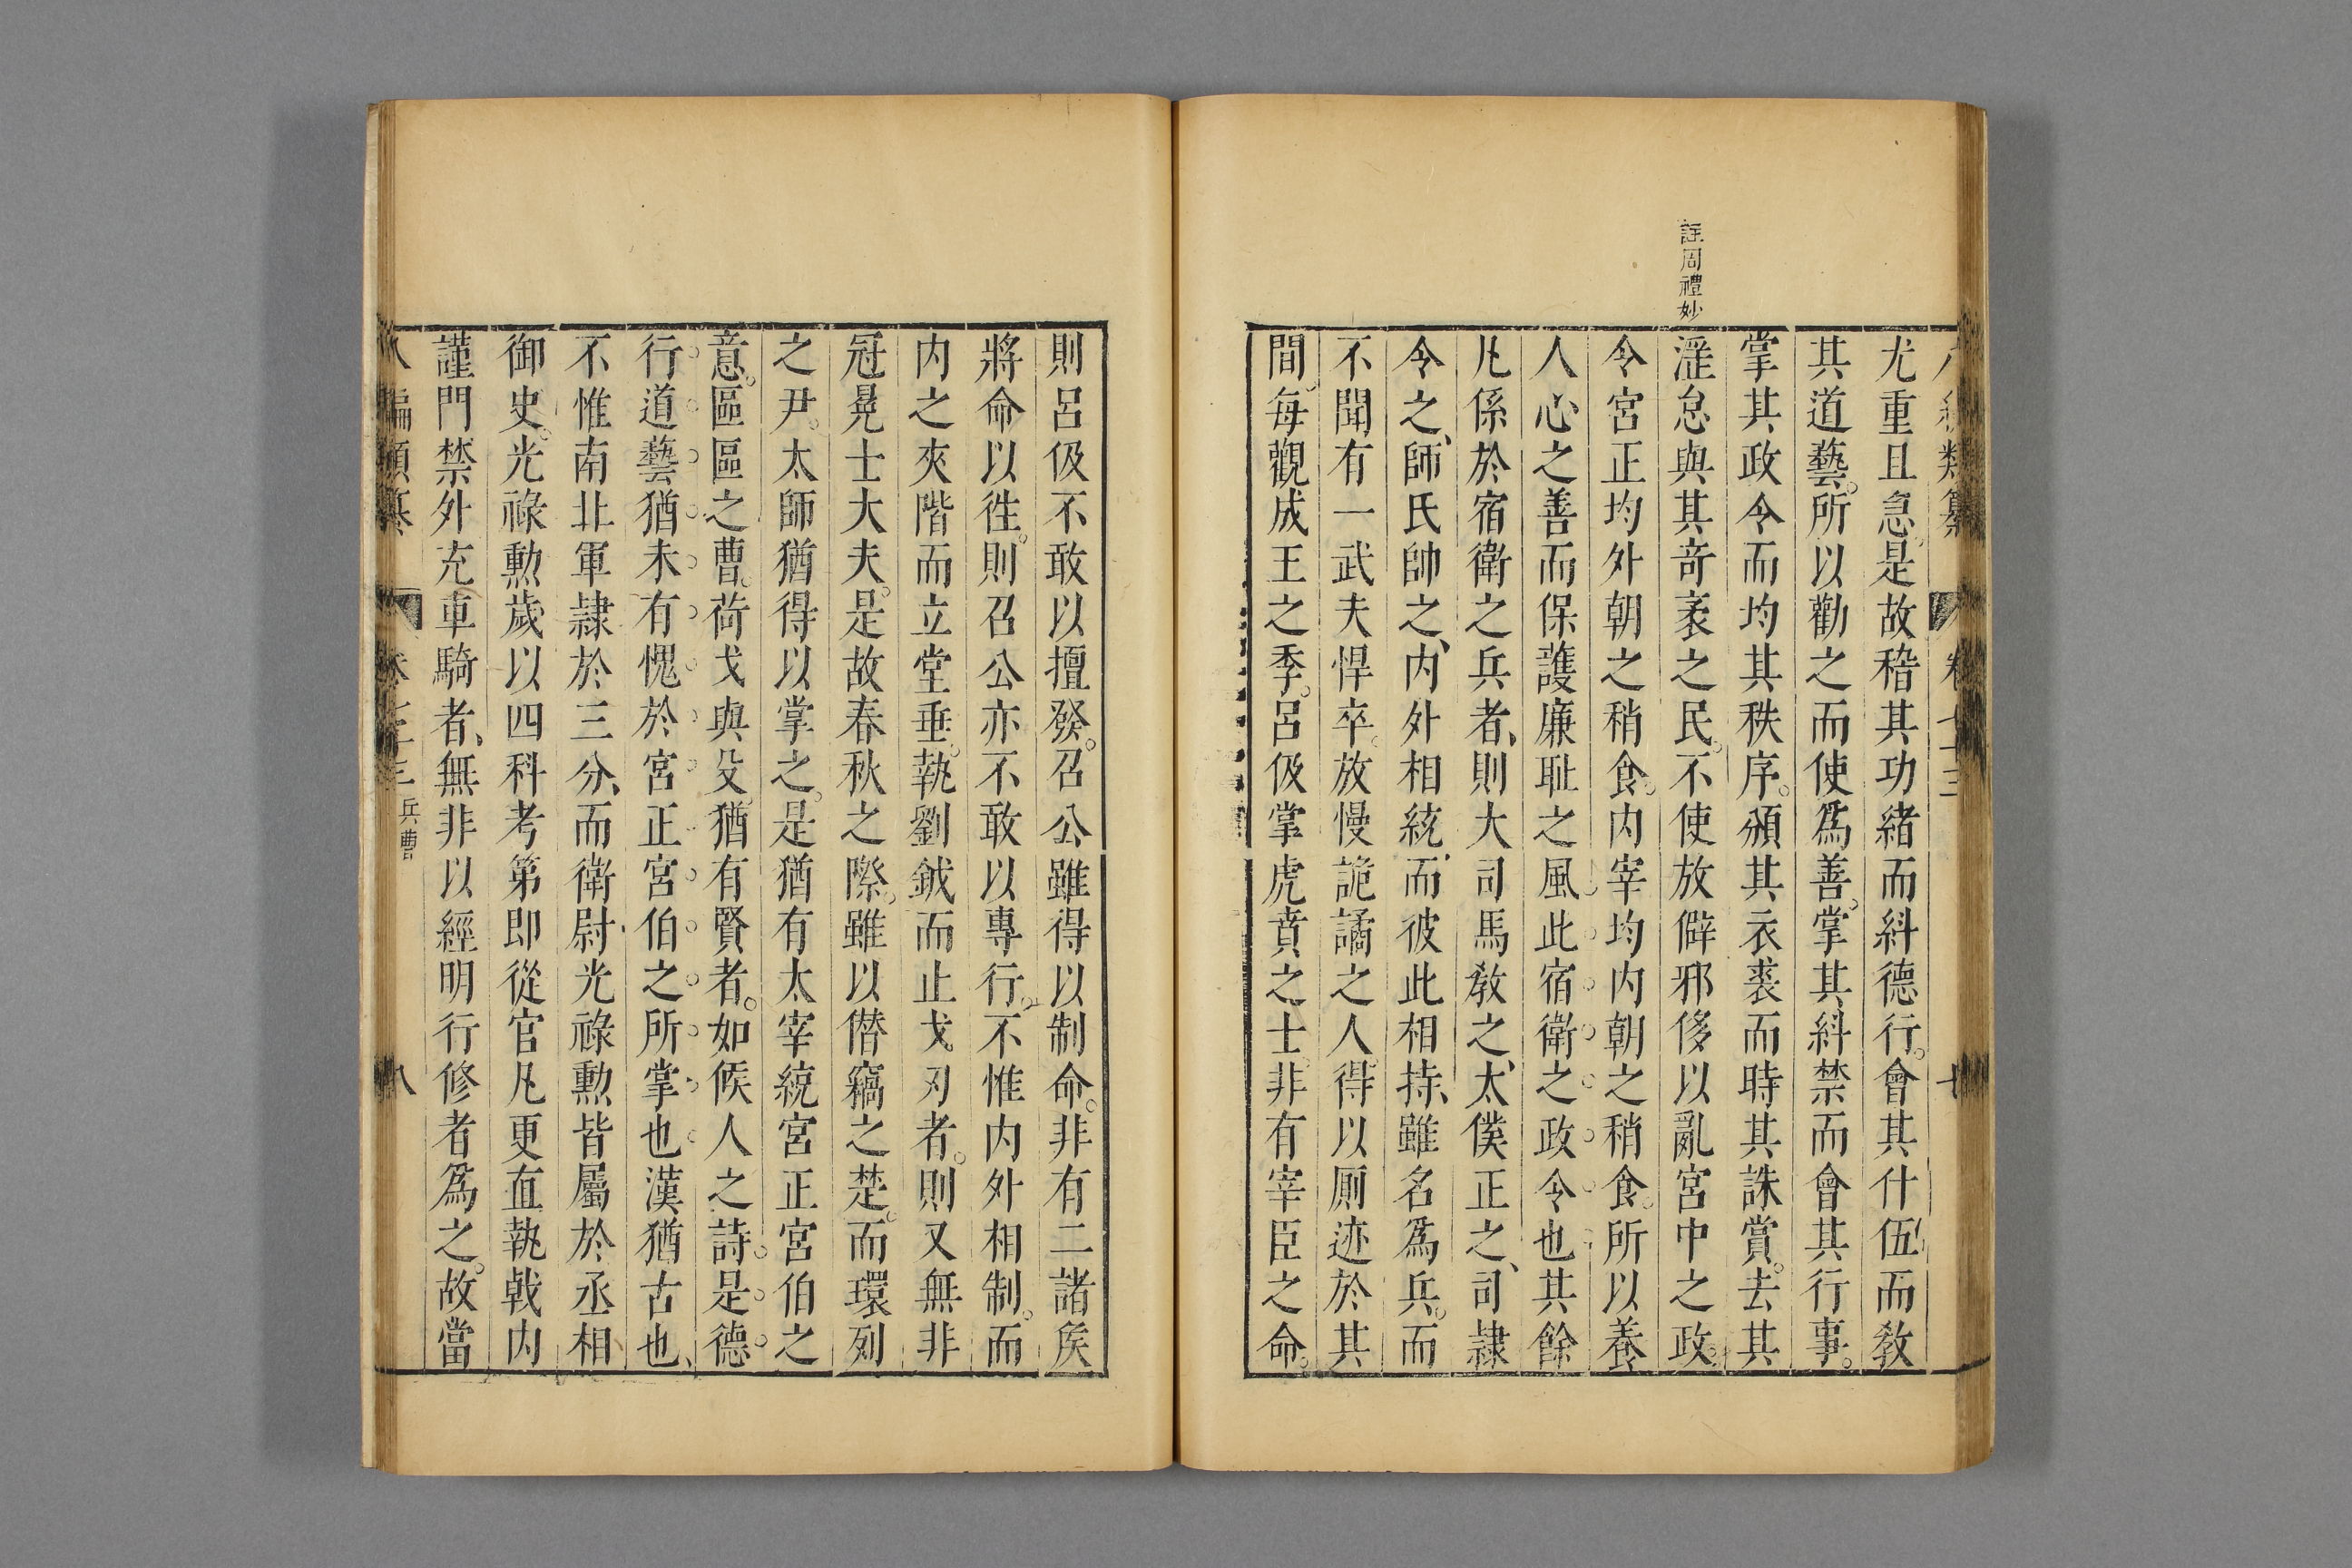 註周禮妙
尤重且急是故稽其功緒而糾德行會其什伍而敎
其道藝所以勸之而使爲善掌其糾禁而會其行事
掌其政令而均其秩序頒其衣裘而時其誅賞去其
淫怠與其奇衺之民不使放僻邪侈以亂宮中之政
令宮正均外朝之稍食内宰均内朝之稍食所以養
人心之善而保護廉耻之風此宿衛之政令也其餘
凡係於宿衛之兵者則大司馬敎之太僕正之司隷
令之師氏帥之内外相統而彼此相持雖名爲兵而
不聞有一武夫悍卒放慢詭譎之人得以厠迹於其
間每觀成王之季呂伋掌虎賁之士非有宰臣之命
則呂伋不敢以擅發召公雖得以制命非有二諸矦
將命以徃則召公亦不敢以專行不惟内外相制而
内之夾階而立堂垂執劉鉞而止戈刃者則又無非
冠冕士大夫是故春秋之際雖以僭竊之楚而環列
之尹太師猶得以掌之是猶有太宰統宮正宮伯之
意區區之曹荷戈與殳猶有賢者如候人之詩是德
行道藝猶未有愧於宮正宮伯之所掌也漢猶古也
不惟南北軍隷於三分而衛尉光祿勲皆屬於丞相
御史光祿勲歲以四科考第即從官凡更直執戟内
謹門禁外充車騎者無非以經明行修者爲之故當
兵曹
八